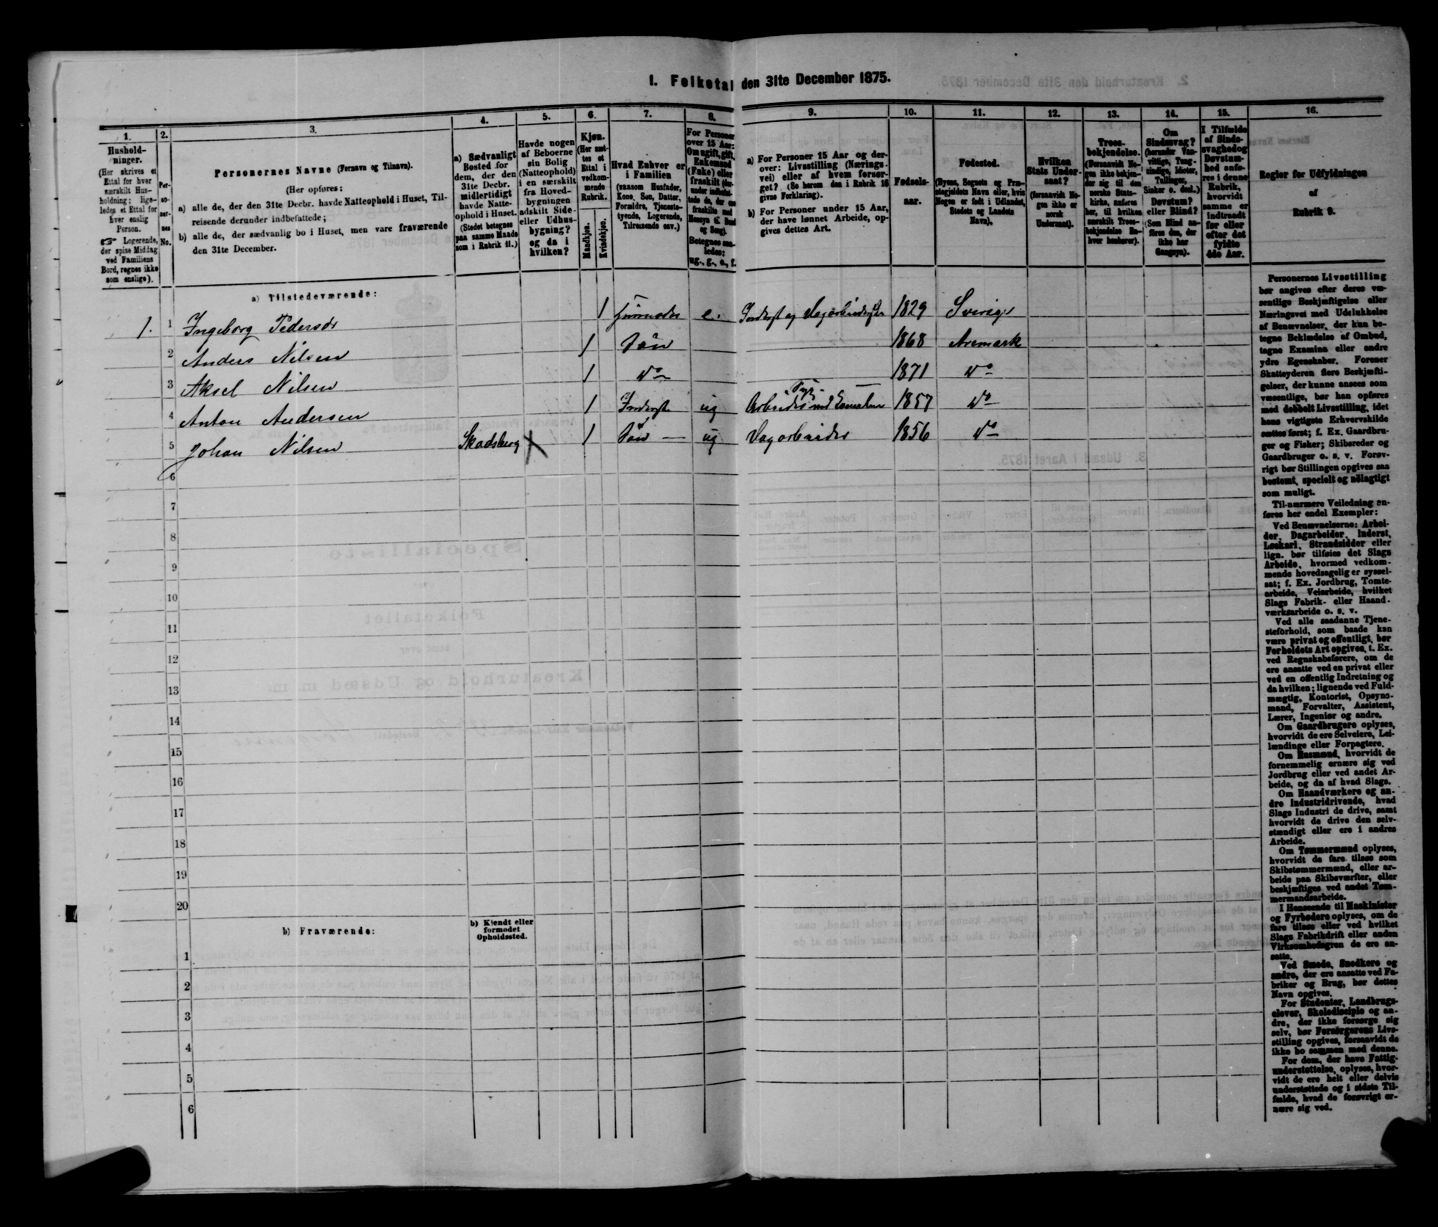 1. Folketal den 31te December 1875.
1. 2. 3. 4. 5. 6. 7. 8. 9. 10. 11. 12. 13. 14. 15. 16.
Hushold-
ninger.
(Her skrives et
Ettal for hver
særskilt Hus-
holdning; lige-
ledes et Ettal for
hver enslig
Person.
☞ Logerende,
der spise Middag
ved Familiens
Bord, regnes ikke
som enslige).
Per-
so-
ner-
nes
No.
Personernes Navne (Fornavn og Tilnavn).
(Her opføres:
a) alle de, der den 31te Decbr. havde Natteophold i Huset, Til-
reisende derunder indbefattede;
b) alle de, der sædvanlig bo i Huset, men vare fraværende
den 31te December.
a) Sædvanligt
Bosted for
dem, der den
31te Decbr.
midlertidigt
havde Natte-
ophold i Huset.
(Stedet betegnes
paa samme Maade
som i Rubrik 11.)
Havde nogen
af Beboerne
sin Bolig
(Natteophold)
i en særskilt
fra Hoved-
bygningen
adskilt Side-
eller Udhus-
bygning?
og da i
hvilken?
Kjøn.
(Her sæt-
tes et
Ettal i
vedkom-
mende
Rubrik.
Mandkjøn.
Kvindekjøn.
Hvad Enhver er
i Familien
(saasom Husfader,
Kone, Søn, Datter,
Forældre, Tjeneste-
tyende, Logerende,
Tilreisende osv.)
For Personer
over 15 Aar:
Om ugift, gift,
Enkemand
(Enke) eller
fraskilt
Betegnes saa-
ledes:
ug., g., e., f.
a) For Personer 15 Aar og der-
over: Livsstilling (Nærings-
vei) eller af hvem forsør-
get? (Se herom den i Rubrik 16
givne Forklaring).
b) For Personer under 15 Aar,
der have lønnet Arbeide, op-
gives dettes Art.
Fødsels-
aar.
Fødested.
(Byens, Sognets og Præ-
stegjældets Navn eller, hvis
Nogen er født i Udlandet,
Stedets og Landets
Navn).
Hvilken
Stats Under-
saat?
(forsaavidt No-
gen ikke er
norsk
Undersaat).
Troes-
bekjendelse.
(Forsaavidt No-
gen ikke bekjen-
der sig til den
norske Stats-
kirke, anføres
her, til hvilken
særskilt Troes-
bekjendelse En-
hver henhører).
Om
Sindssvag?
(herunder Van-
vittige, Tung-
sindige, Idioter,
Tullinger,
Sinker o. desl.)
Døvstum?
eller Blind?
(Som Blind an-
føres den, der
ikke har
Gangsyn).
I Tilfælde
af Sinds-
svaghed og
Døvstum-
hed anfø-
res i denne
Rubrik,
hvorvidt
samme er
indtraadt
før eller
efter det
fyldte
4de Aar.
Regler for Udfyldningen
af
Rubrik 9.
a) Tilstedeværende:
1. 1 Ingeborg Pedersdr 1 Huusmoder e. Inderst og Sagarbeiderske 1829 Sverige
2 Anders Nilsen 1 Søn 1868 Aremark
3 Aksel Nilsen 1 do 1871 do
4 Anton Andersen 1 Inderst ug Arbeider ved 1857 do
5 Johan Nilsen Skodsberg X 1 Søn — ug Sagarbeider 1856 do
6
7
8
9
10
11
12
13
14
15
16
17
18
19
20
b) Fraværende:
b) Kjendt eller
formodet
Opholdssted.
1
2
3
4
5
6
Personernes Livsstilling
bør angives efter deres væ-
sentlige Beskjæftigelse eller
Næringsvei med Udelukkelse
af Benævnelser, der kun be-
tegne Beklædelse af Ombud,
tagne Examina eller andre
ydre Egenskaber. Forener
Skatteyderen flere Beskjæfti-
gelser, der kunne ansees som
væsentlige, bør han opføres
med dobbelt Livsstilling, idet
hans vigtigste Erhvervskilde
sættes først; f. Ex. Gaardbru-
ger og Fisker; Skibsreder og
Gaardbruger o. s. v. Forøv-
rigt bør Stillingen opgives saa
bestemt, specielt og nøiagtigt
som muligt.
Til nærmere Veiledning an-
føres her endel Exempler:
Ved Benævnelserne: Arbei-
der, Dagarbeider, Inderst,
Løskarl, Strandsidder eller
lign. bør tilføies det Slags
Arbeide, hvormed vedkom-
mende hovedsagelig er syssel-
sat; f. Ex. Jordbrug, Tomte-
arbeide, Veiarbeide, hvilket
Slags Fabrik- eller Haand-
værksarbeide o. s. v.
Ved alle saadanne Tjene-
steforhold, som baade kan
være privat og offentligt, bør
Forholdets Art opgives, f. Ex.
ved Regnskabsførere, om de
ere ansatte ved en privat eller
ved en offentlig Indretning og
da hvilken; lignende ved Fuld-
mægtig, Kontorist, Opsyns-
mand, Forvalter, Assistent,
Lærer, Ingeniør og andre.
Om Gaardbrugere oplyses,
hvorvidt de ere Selveiere, Lei-
lændinge eller Forpagtere.
Om Husmænd, hvorvidt de
fornemmelig ernære sig ved
Jordbrug eller ved andet Ar-
beide, og da af hvad Slags.
Om Haandværkere og an-
dre Industridrivende, hvad
Slags Industri de drive, samt
hvorvidt de drive den selv-
stændigt eller ere i andres
Arbeide.
Om Tømmermænd oplyses,
hvorvidt de fare tilsøs som
Skibstømmermænd, eller ar-
beide paa Skibsværfter, eller
beskjæftiges ved andet Tøm-
mermandsarbeide.
I Henseende til Maskinister
og Fyrbødere oplyses, om de
fare tilsøs eller ved hvilket
Slags Fabrikdrift eller anden
Virksomhedsgren de ere an-
satte.
Ved Smede, Snedkere og
andre, der ere ansatte ved Fa-
briker og Brug, bør dettes
Navn opgives.
For Studenter, Landbrugs-
elever, Skoledisciple og an-
dre, der ikke forsørge sig
selv, bør Forsørgerens Livs-
stilling opgives, forsaavidt de
ikke bo sammen med denne.
For dem, der have Fattig-
understøttelse, oplyses, hvor-
vidt de ere helt eller delvis
understøttede og i sidste Til-
fælde, hvad de forøvrigt er-
nære sig ved.